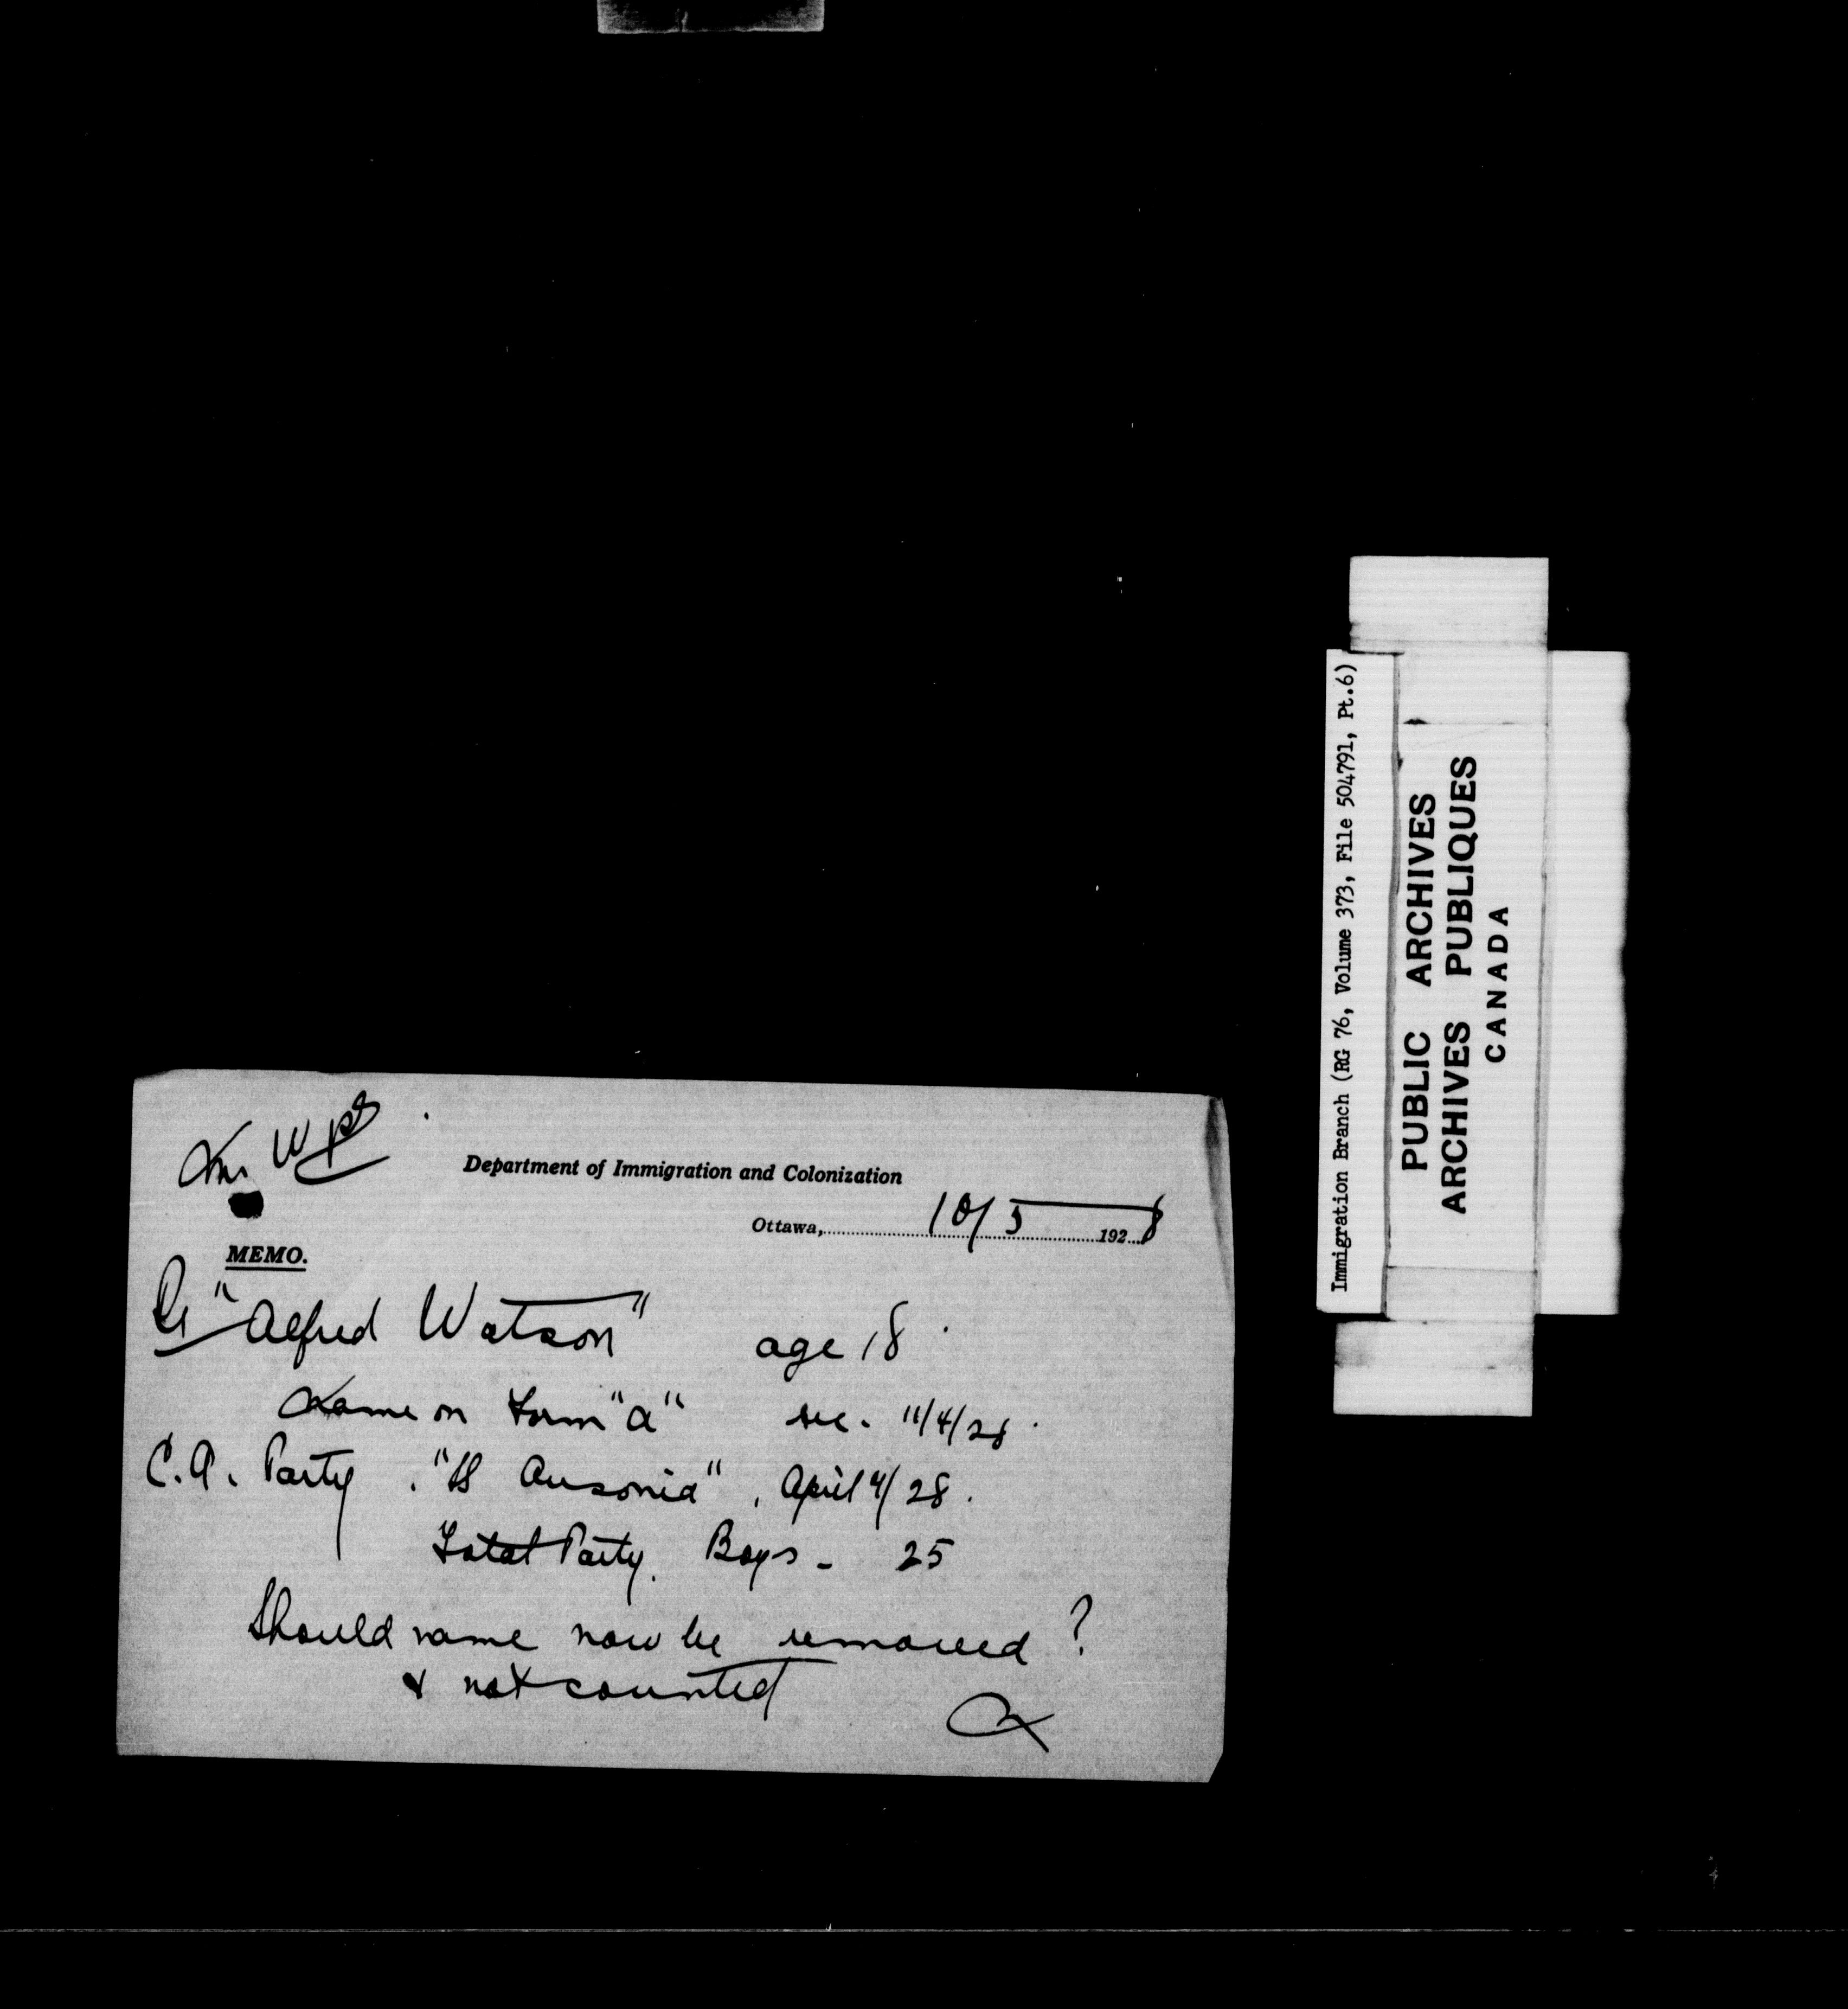 Department of Immigration and Colonization
Ottawa, 10/5 1928
MEMO.
Re "Alfred Watson" age 18
Name on Form "A" rec. 11/4/28.
C.A. Party. "SS Ausonia", April 4/28.
Total Party. Boys - 25
Should name now be removed?
& not counted
Immigration Branch (RG 76, Volume 373, File 504791, Pt.6)
PUBLIC ARCHIVES
ARCHIVES PUBLIQUES
CANADA